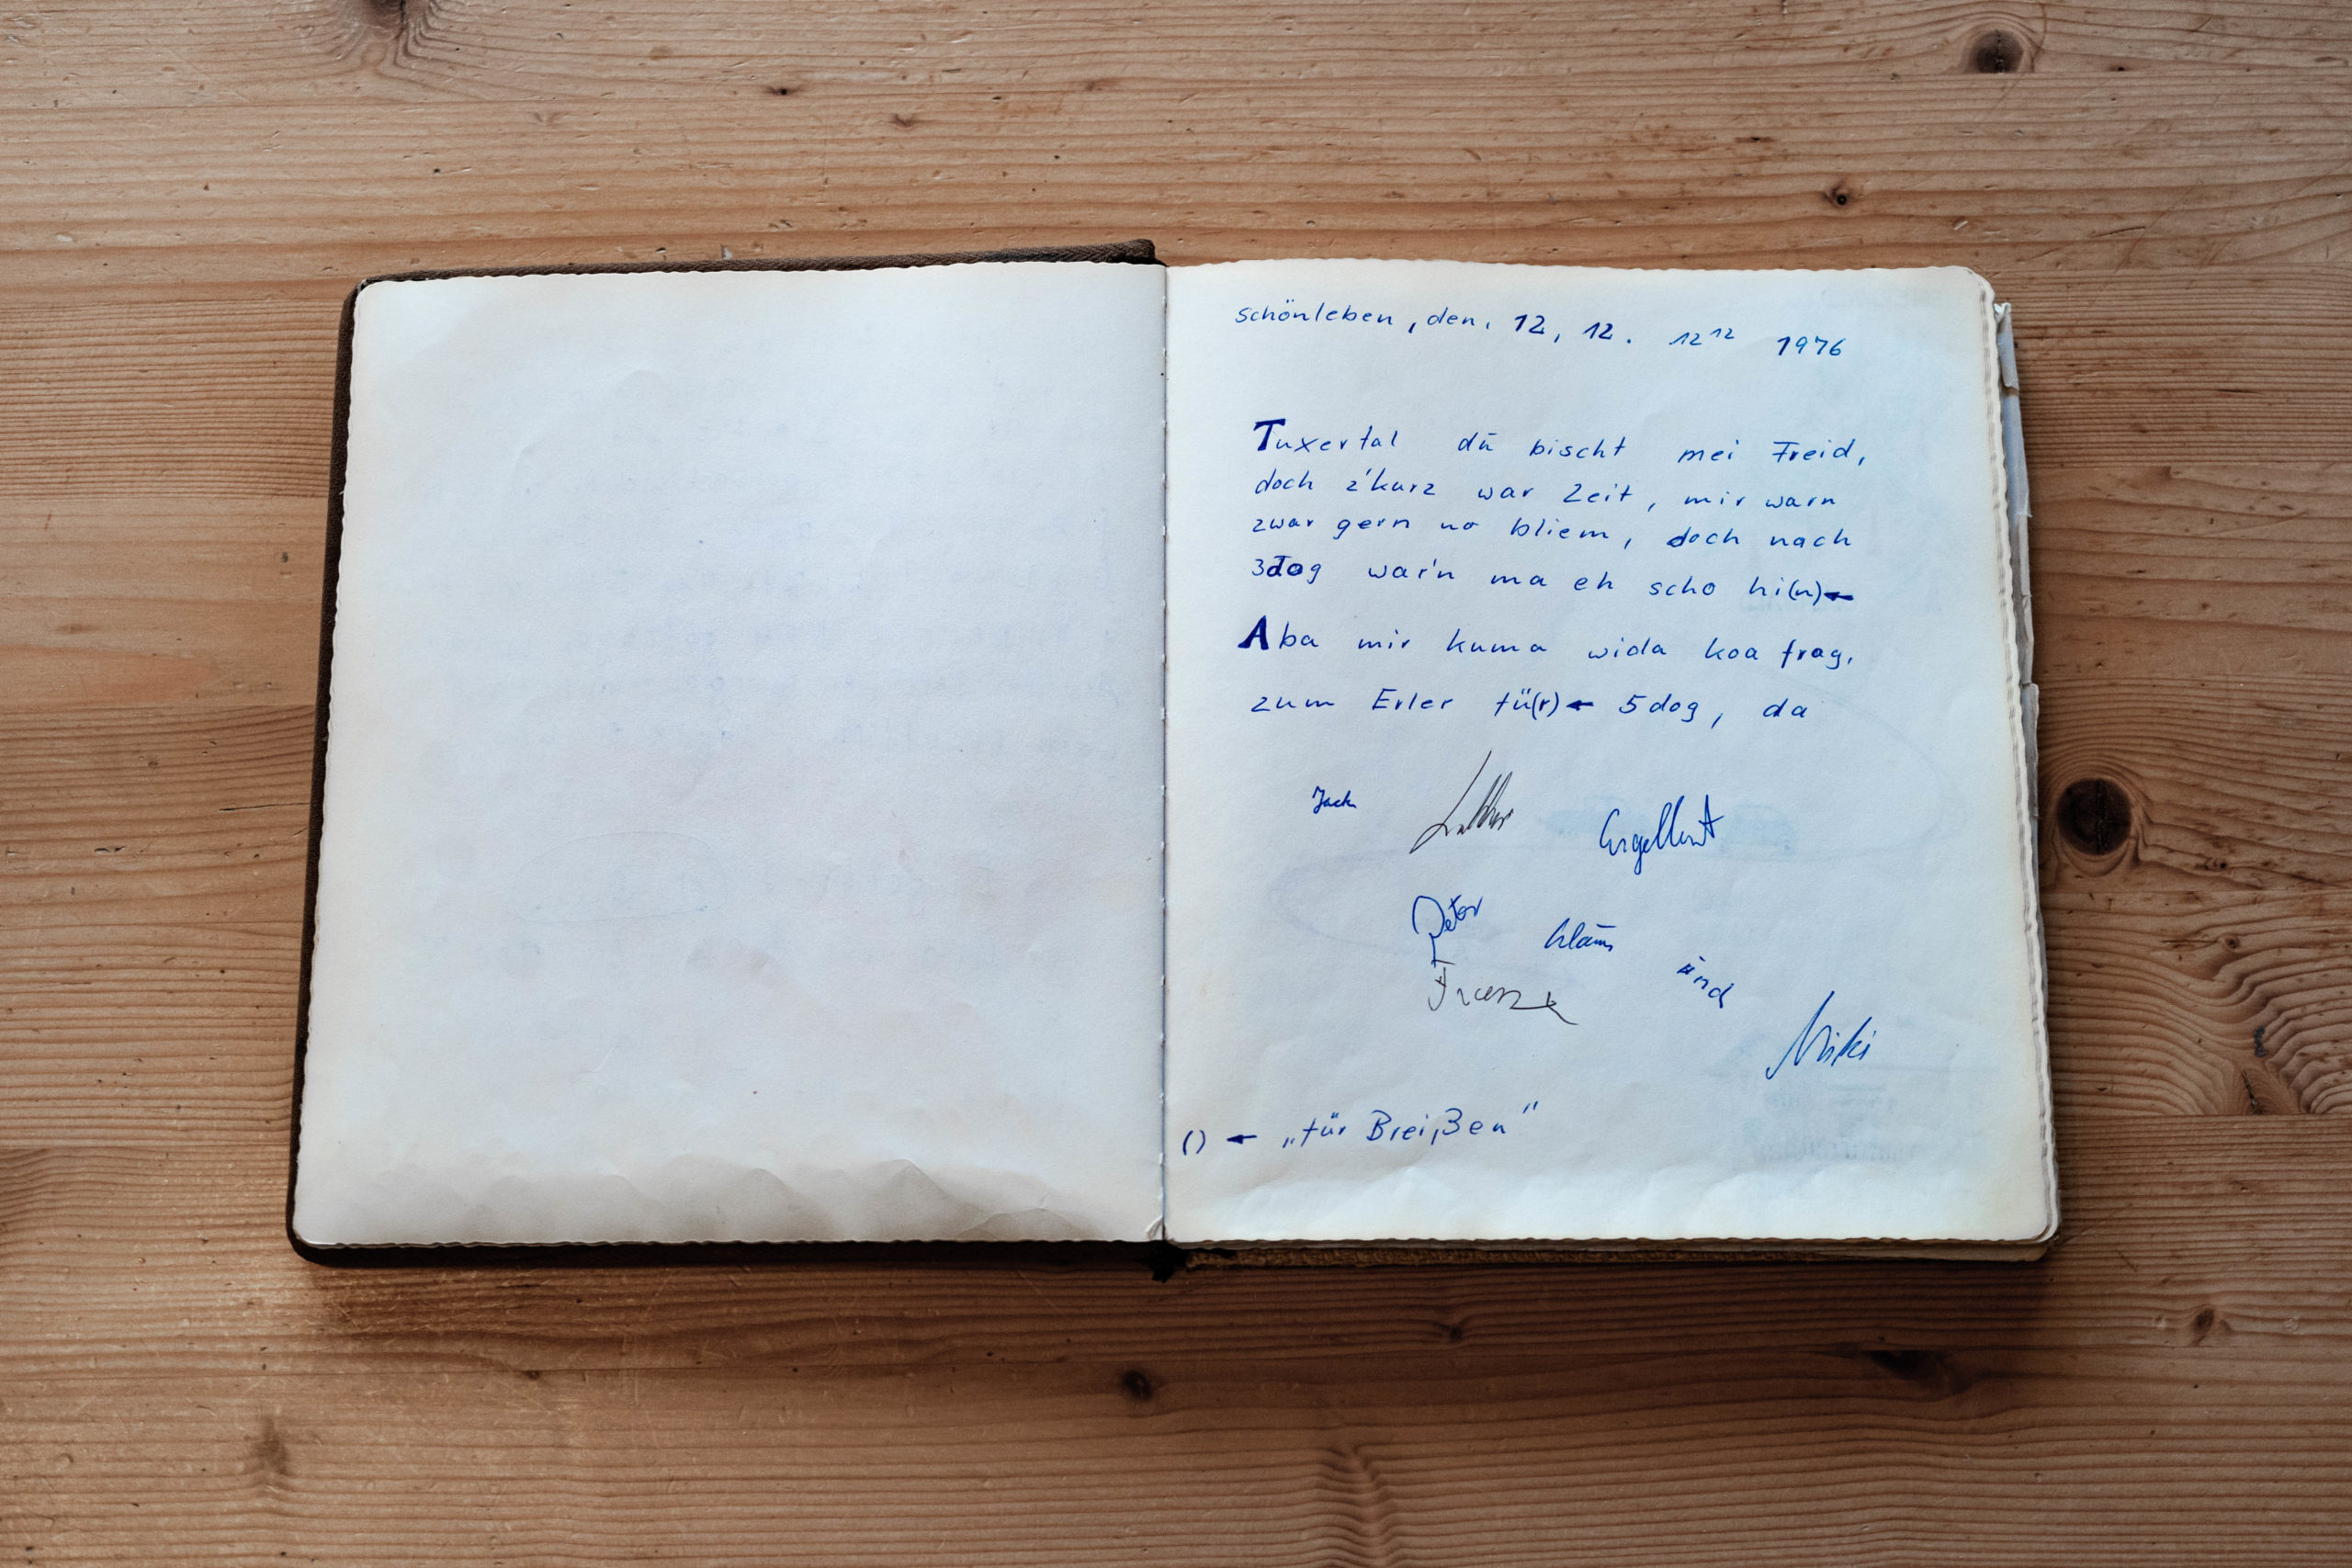 schönleben, den. 12, 12. 12¹² 1976
Tuxertal dū bischt mei Freid,
doch z'kurz war Zeit, mir warn
zwar gern no bliem, doch nach
3dog war'n ma eh scho hi(n)←
Aba mir kuma wida koa frag,
zum Erler fü(r)← 5dog, da
Jack
Peter Klaus und
Franz
Niki
() ← „für Breißen"